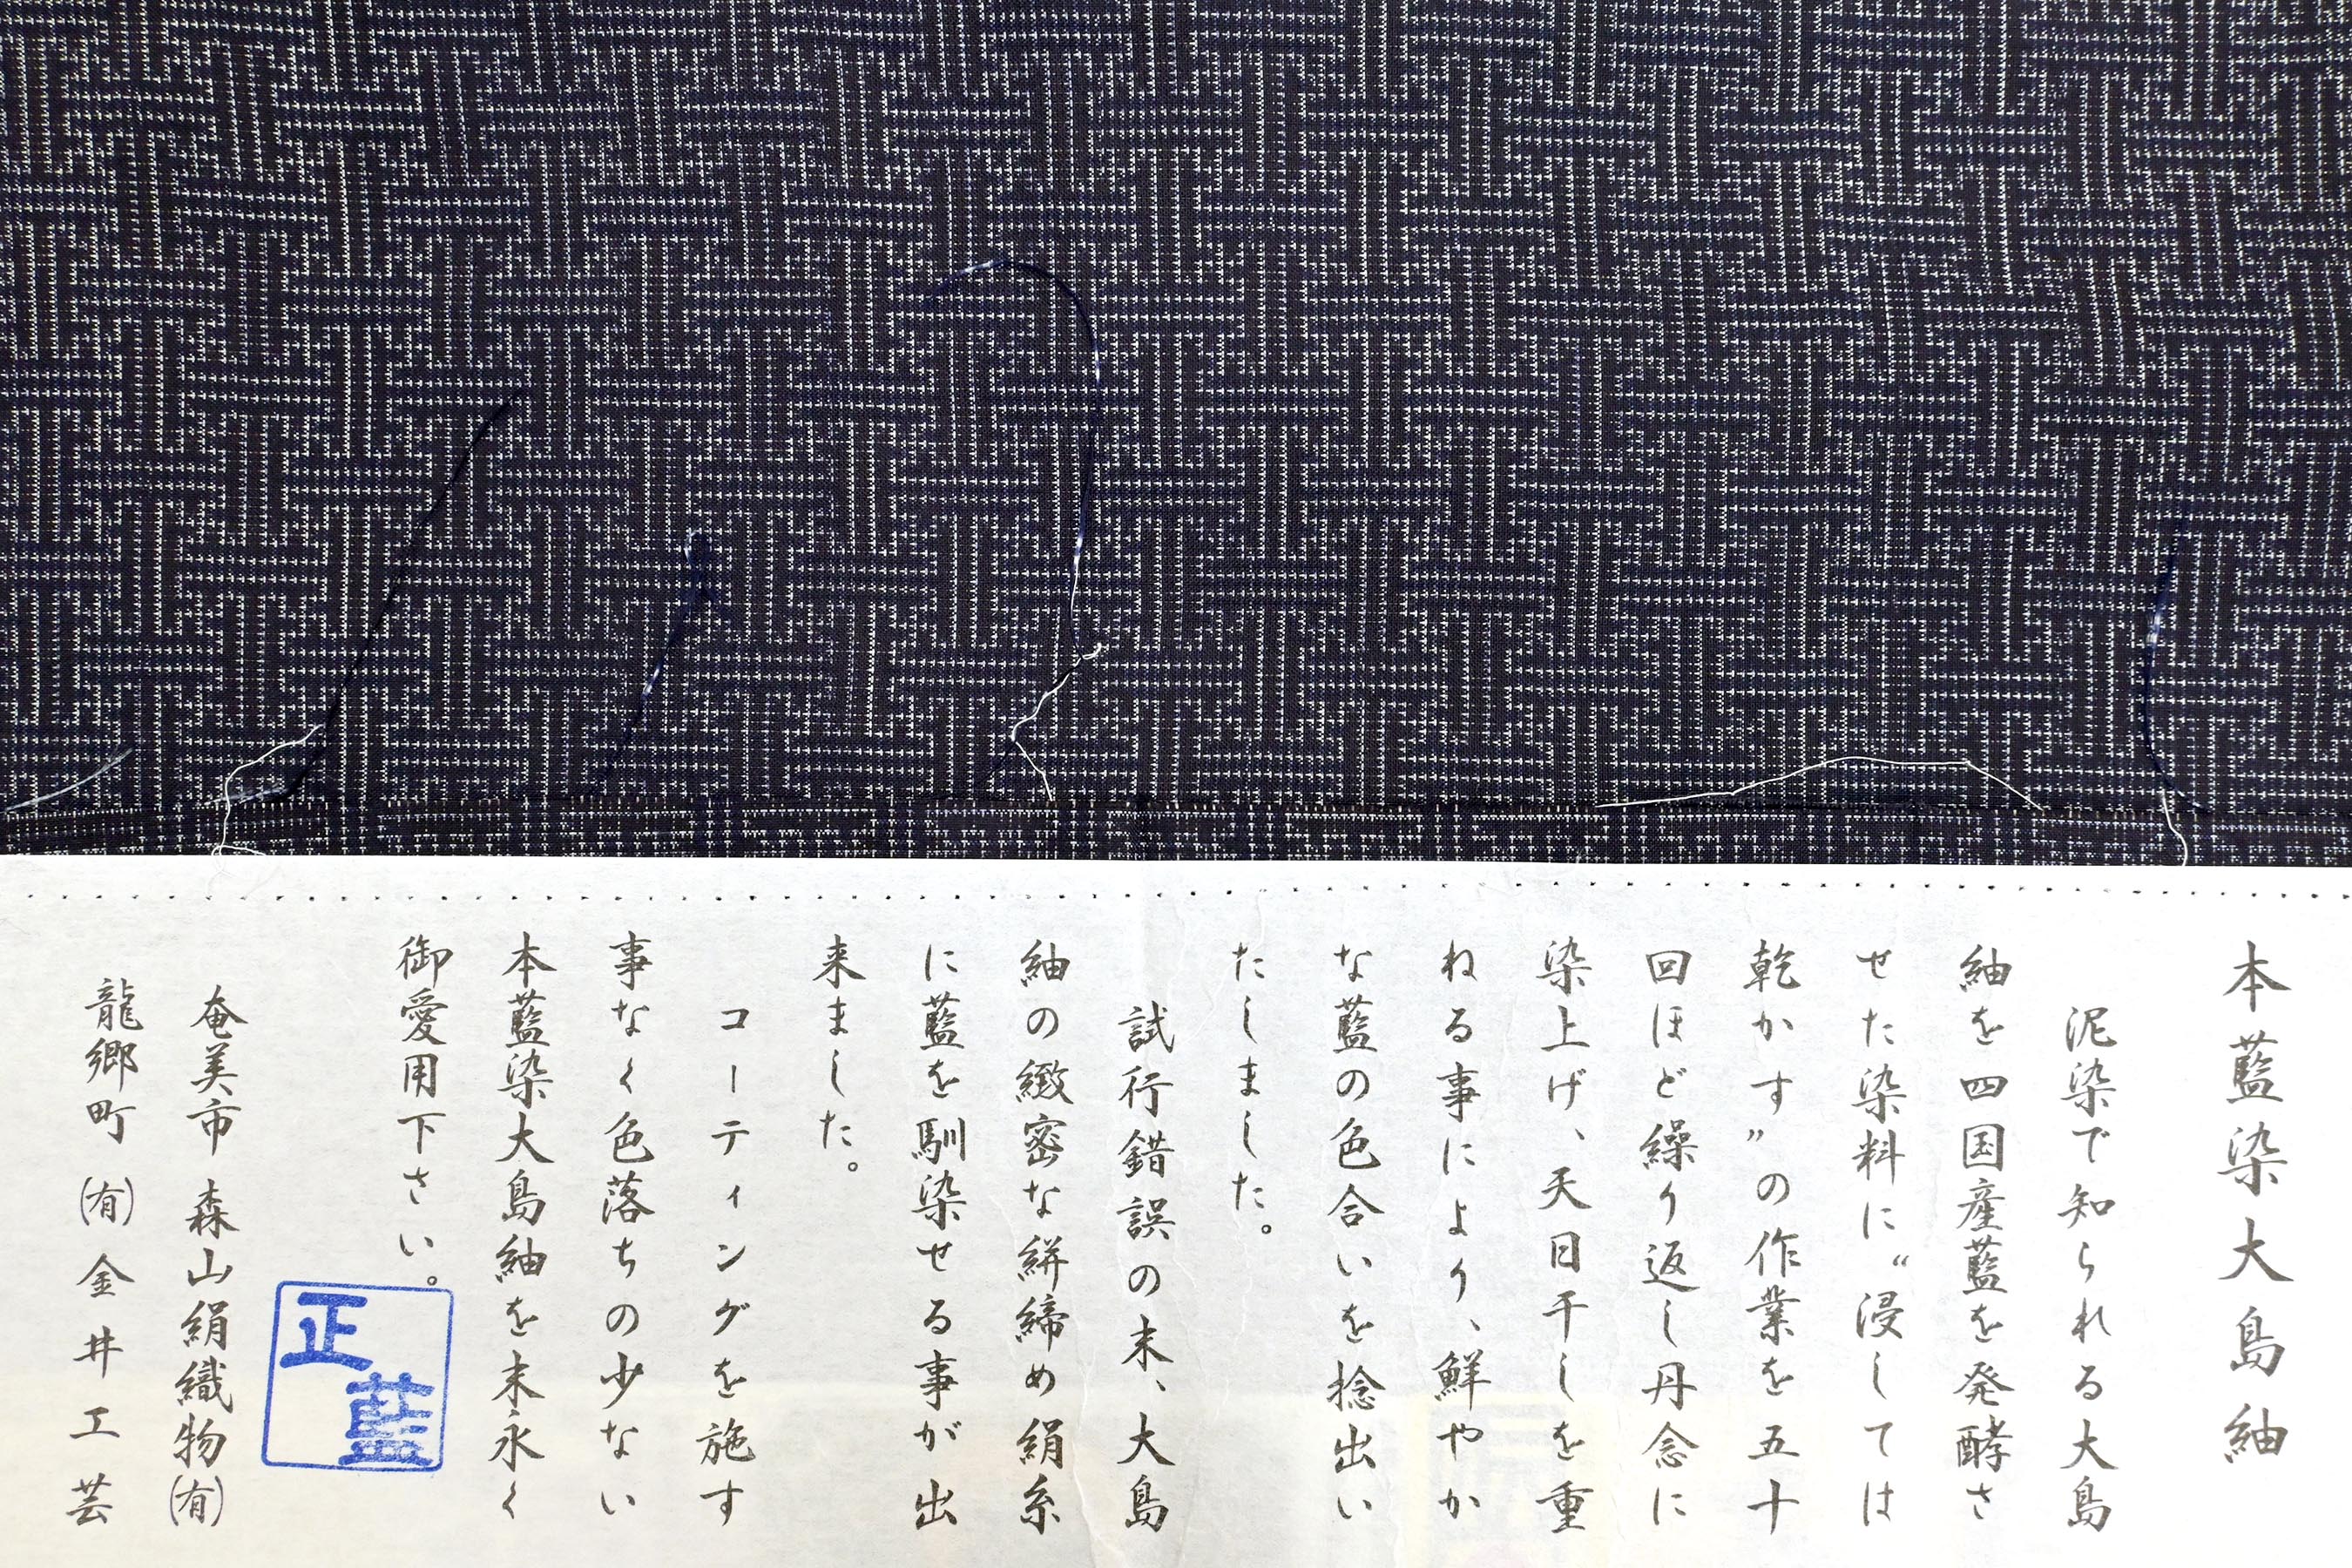 本藍染大島紬
泥染で知られる大島
紬を四国産藍を発酵さ
せた染料に〝浸しては
乾かす〟の作業を五十
回ほど繰り返し丹念に
染上げ、天日干しを重
ねる事により、鮮やか
な藍の色合いを捻出い
たしました。
試行錯誤の末、大島
紬の緻密な絣締め絹糸
に藍を馴染せる事が出
来ました。
コーティングを施す
事なく色落ちの少ない
本藍染大島紬を末永く
御愛用下さい。
正藍
奄美市 森山絹織物(有)
龍郷町 (有)金井工芸